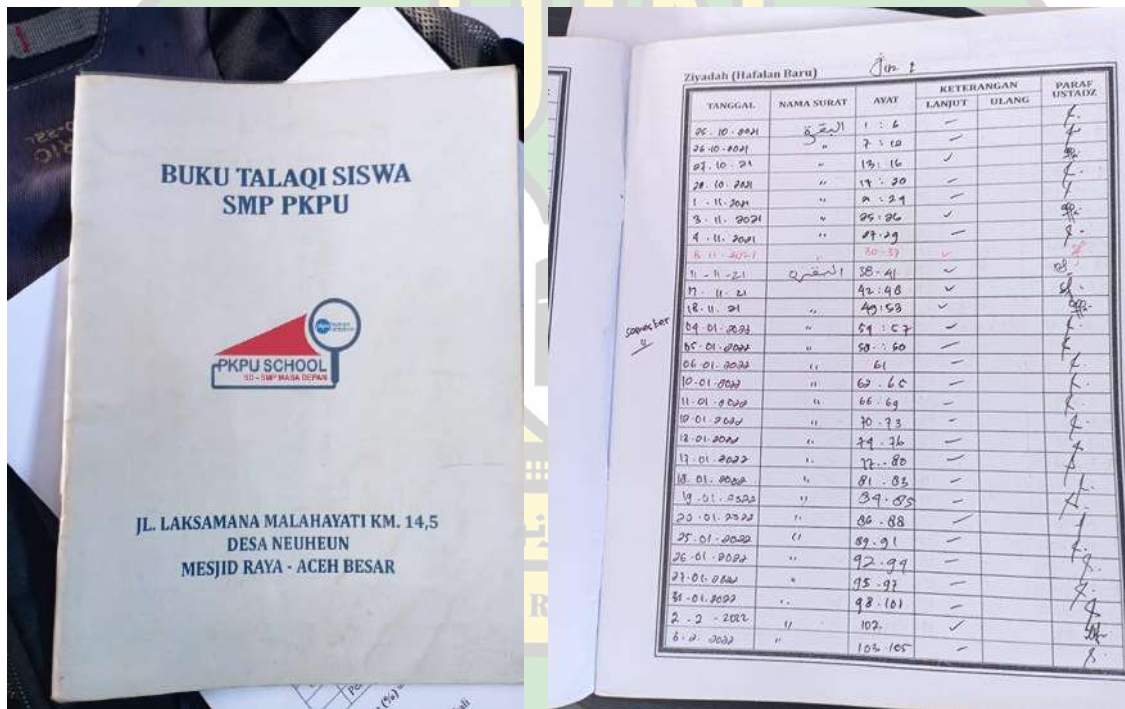 BUKU TALAQI SISWA
SMP PKPU
PKPU SCHOOL
SD - SMP MASA DEPAN
JL. LAKSAMANA MALAHAYATI KM. 14,5
DESA NEUHEUN
MESJID RAYA - ACEH BESAR
Ziyadah (Hafalan Baru) Juz 1
TANGGAL NAMA SURAT AYAT KETERANGAN PARAF USTADZ
LANJUT ULANG
البقرة 1 : 6
26-10-2021 " 7 : 12
27.10.21 " 13 : 16
28.10.2021 " 17 : 20
1 - 11-2021 " : 24
3 - 11. 2021 " 25:26
4 - 11. 2021 " 27-29
30-37
11 - 11 -21 البقرة 38-41
17. 11. 21 42:48
18. 11. 21 " 49:53
semester
II
04.01.2022 " 54 : 57
05.01.2022 " 58 : 60
06-01.2022 " 61
10-01.2022 " 62 . 65
11-01-2022 " 66 - 69
12-01-2022 " 70 - 73
13-01-2022 " 74 - 76
17-01-2022 " 77 - 80
18. 01. 2022 " 81 . 83
19.01.2022 " 84-85
20-01.2022 " 86 - 88
25.01-2022 " 89-91
26-01.2022 " 92-94
27-01-2022 " 95-97
31-01.2022 " 98-101
2 - 2 - 2022 " 102
6-2. 2022 " 103-105